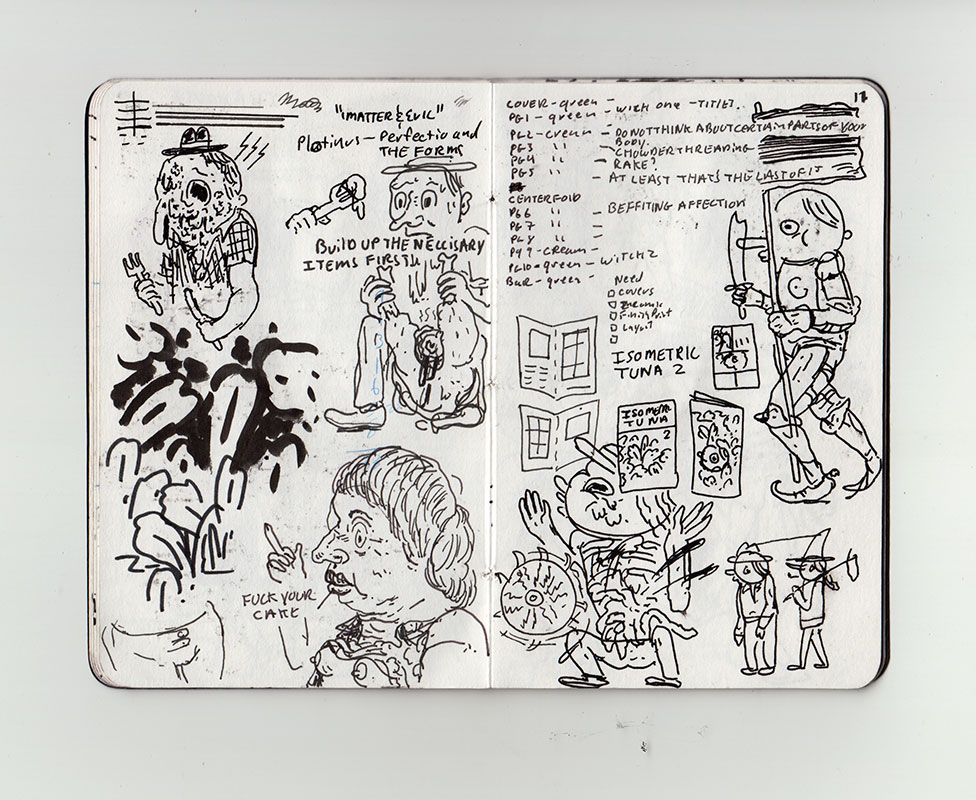 "MATTER & EVIL"
Plotinus - Perfectio and
THE FORMS
BUILD UP THE NECCISARY
ITEMS FIRST
FUCK YOUR
CAKE
17
COVER - green -
PG1 - green - with one - TITLE?..
PG2 - cream - DO NOT THINK ABOUT CERTAIN PARTS OF YOUR
BODY.
PG3 " -
CHOWDER THREADING
PG4 " - RAKE?
PG5 " - AT LEAST THAT'S THE LAST OF IT
CENTERFOLD
PG6 " - BEFFITING AFFECTION
PG7 " -
PG8 " -
PG9 - CREAM -
PG10 - green - WITCH 2
BAR - green -
Need
COVERS
Finish Print
Layout
ISOMETRIC
TUNA 2
ISOMETRIC
TUNA
2